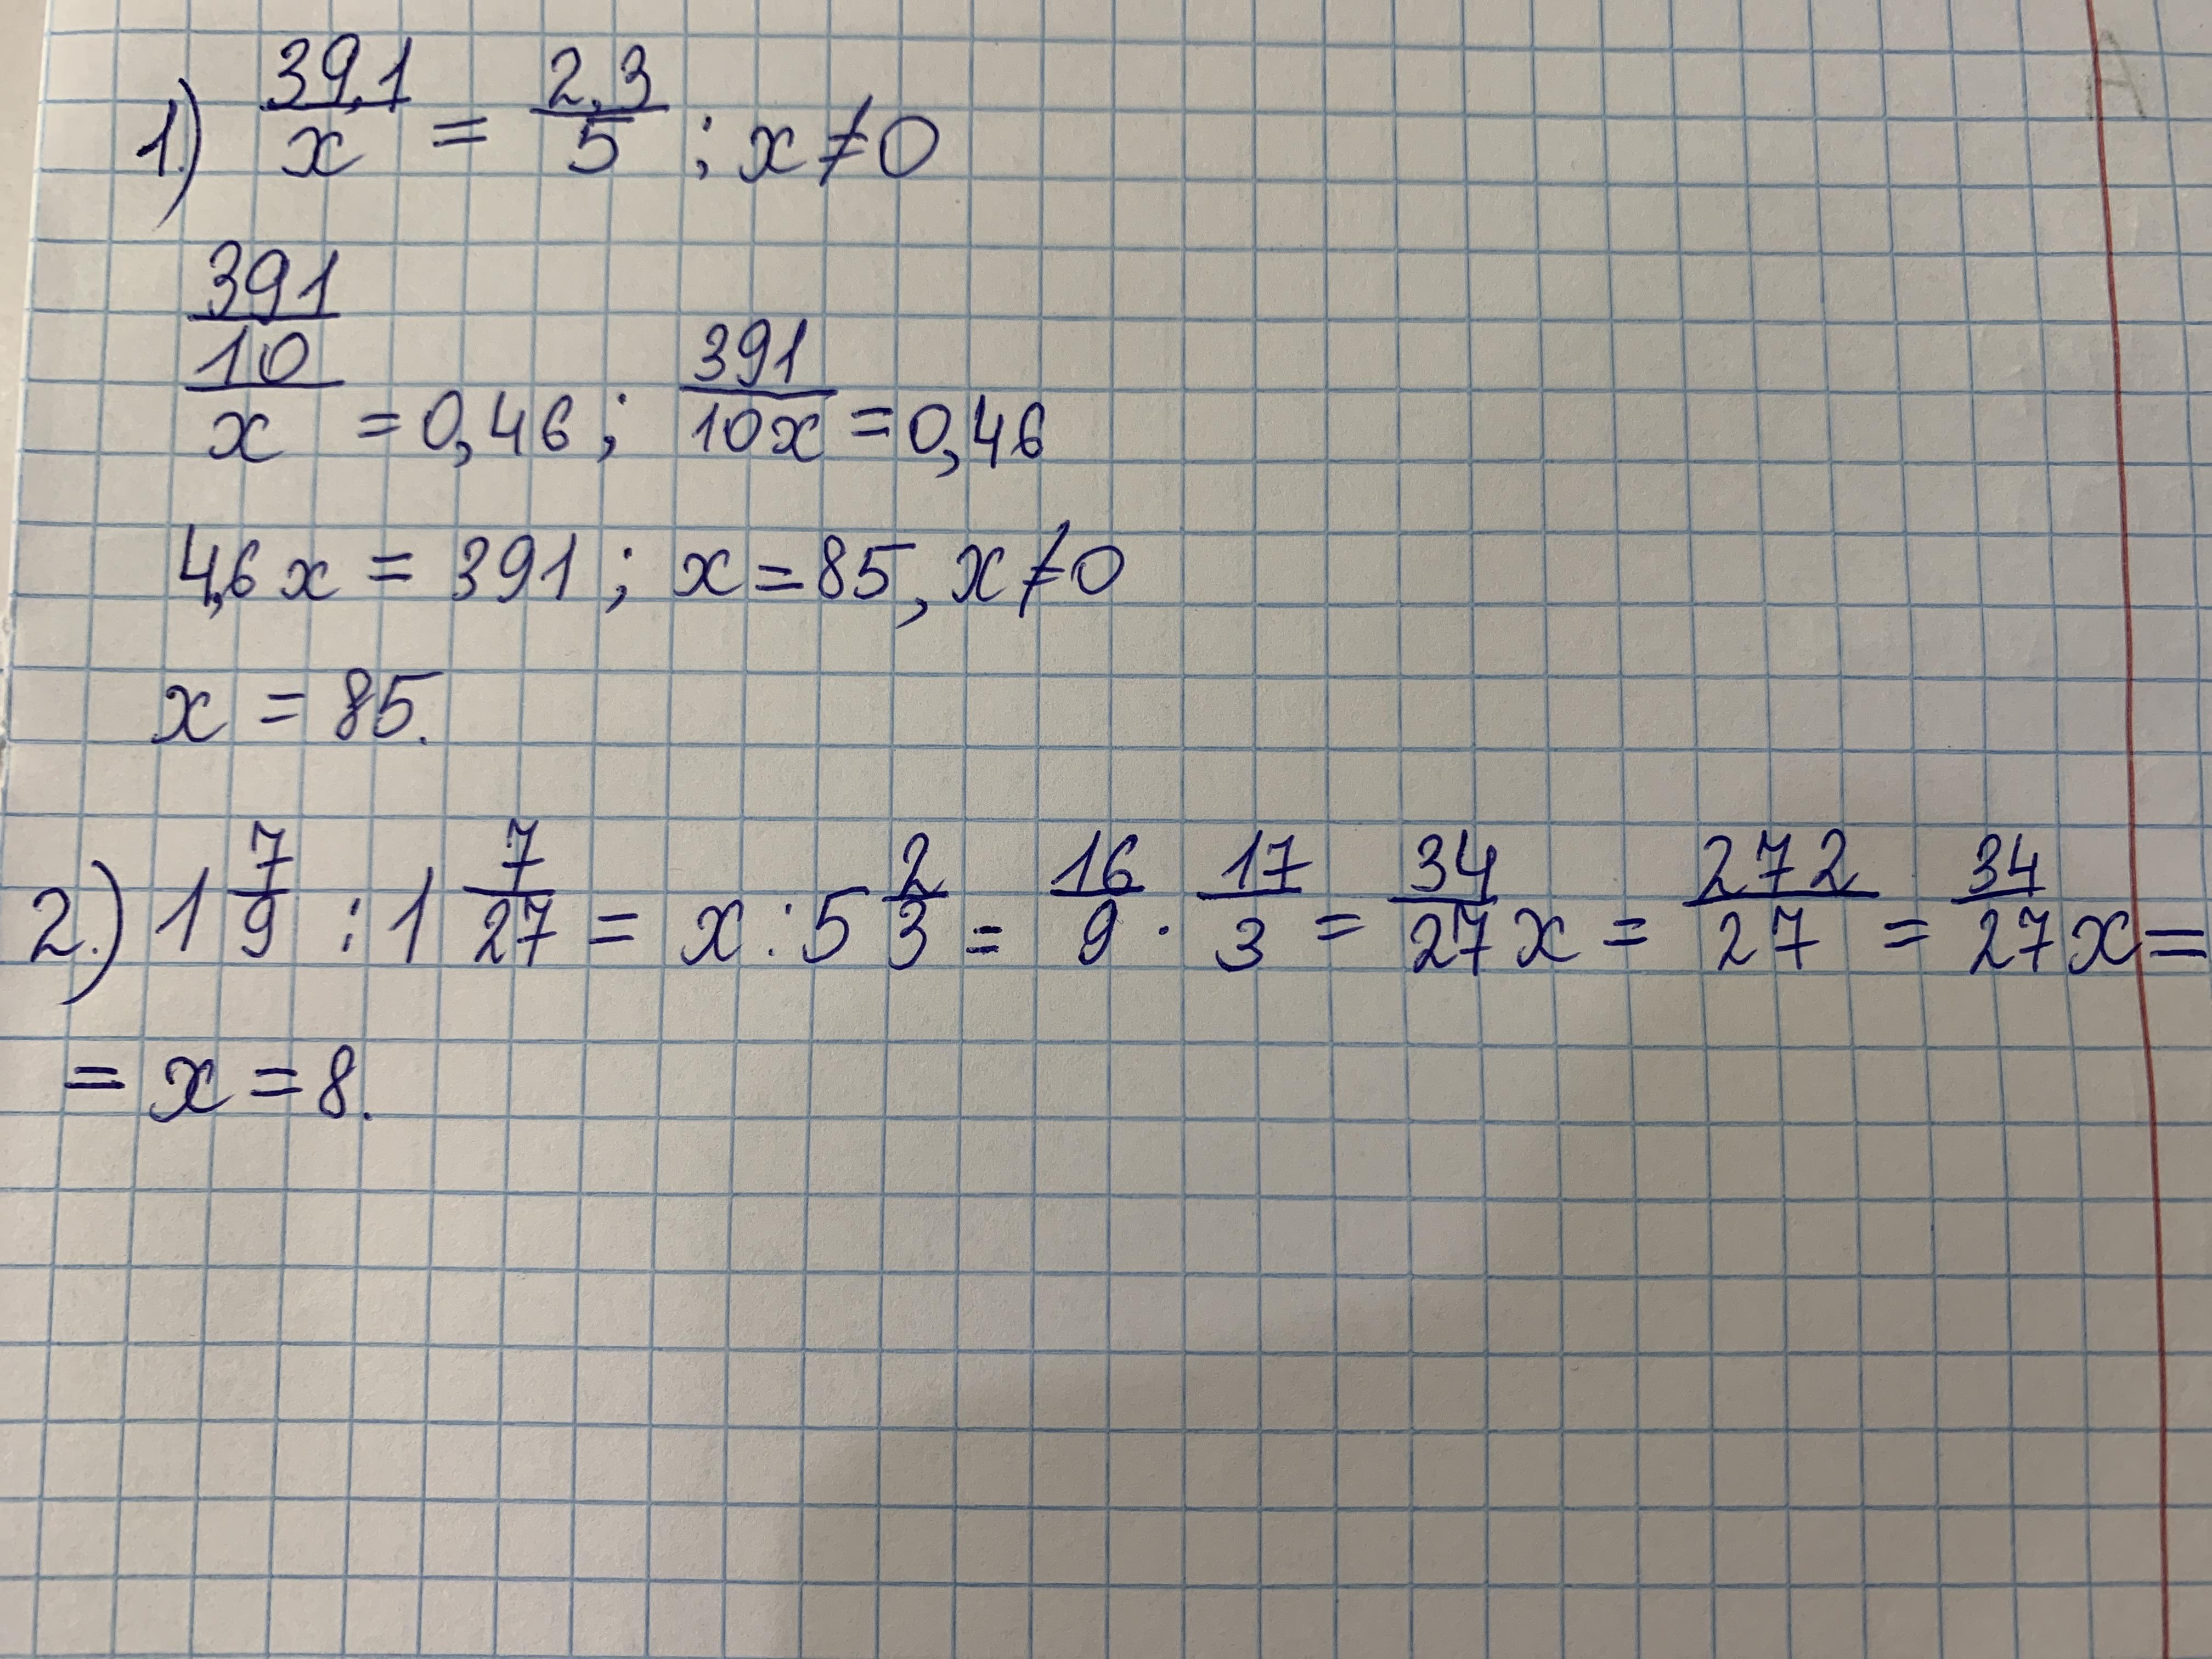 1.) 39,1/x = 2,3/5 ; x ≠ 0
391/10/x = 0,46 ; 391/10x = 0,46
4,6x = 391 ; x = 85, x ≠ 0
x = 85.
2.) 1 7/9 : 1 7/27 = x : 5 2/3 = 16/9 · 17/3 = 34/27 x = 272/27 = 34/27 x =
= x = 8.
A